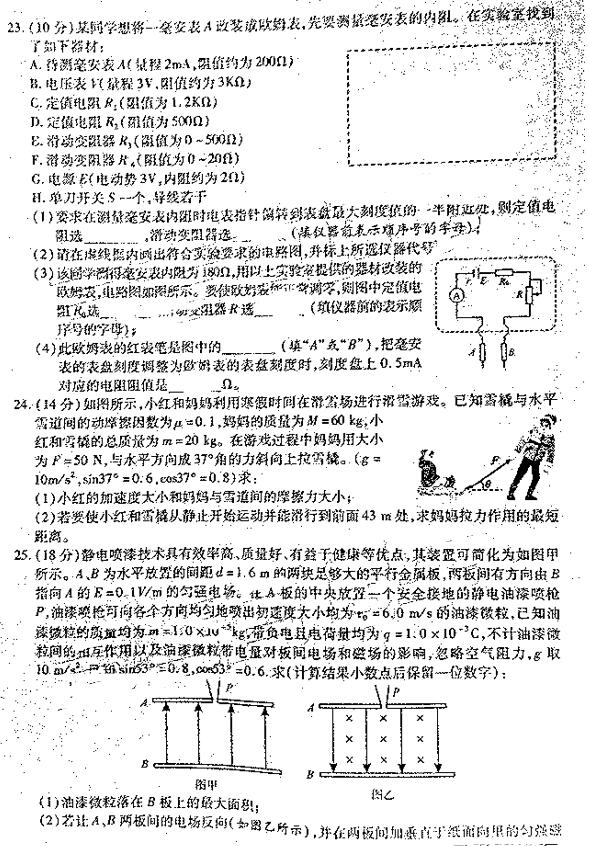 23.(10分)某同学想将一毫安表A改装成欧姆表,先要测量毫安表的内阻。在实验室找到
了如下器材:
A.待测毫安表A(量程2mA,阻值约为200Ω)
B.电压表V(量程3V,阻值约为3KΩ)
C.定值电阻R₁(阻值为1.2KΩ)
D.定值电阻R₂(阻值为500Ω)
E.滑动变阻器R₃(阻值为0~500Ω)
F.滑动变阻器R₄(阻值为0~20Ω)
G.电源E(电动势3V,内阻约为2Ω)
H.单刀开关S一个,导线若干
(1)要求在测量毫安表内阻时电表指针偏转到表盘最大刻度值的一半附近处,则定值电
阻选______,滑动变阻器选______(填仪器前表示顺序号的字母);
(2)请在虚线框内画出符合实验要求的电路图,并标上所选仪器代号
(3)该同学测得毫安表内阻为180Ω,用以上实验室提供的器材改装的
欧姆表,电路图如图所示。要使欧姆表能正常调零,则图中定值电
阻R₀选______;滑动变阻器R选______(填仪器前的表示顺
序号的字母);
(4)此欧姆表的红表笔是图中的______(填“A”或“B”),把毫安
表的表盘刻度调整为欧姆表的表盘刻度时,刻度盘上0.5mA
对应的电阻阻值是______Ω。
A r E R₀ R
A B
24.(14分)如图所示,小红和妈妈利用寒假时间在滑雪场进行滑雪游戏。已知雪橇与水平
雪道间的动摩擦因数为μ=0.1,妈妈的质量为M=60 kg,小
红和雪橇的总质量为m=20 kg。在游戏过程中妈妈用大小
为F=50 N,与水平方向成37°角的力斜向上拉雪橇。(g=
10m/s²,sin37°=0.6,cos37°=0.8)求:
(1)小红的加速度大小和妈妈与雪道间的摩擦力大小;
(2)若要使小红和雪橇从静止开始运动并能滑行到前面43 m处,求妈妈拉力作用的最短
距离。
F θ
25.(18分)静电喷漆技术具有效率高、质量好、有益于健康等优点,其装置可简化为如图甲
所示。A、B为水平放置的间距d=1.6 m的两块足够大的平行金属板,两板间有方向由B
指向A的E=0.1V/m的匀强电场。在A板的中央放置一个安全接地的静电油漆喷枪
P,油漆喷枪可向各个方向均匀地喷出初速度大小均为v₀=6.0 m/s的油漆微粒,已知油
漆微粒的质量均为m=1.0×10⁻⁵kg,带负电且电荷量均为q=1.0×10⁻³C,不计油漆微
粒间的相互作用以及油漆微粒带电量对板间电场和磁场的影响,忽略空气阻力,g取
10 m/s²,已知sin53°=0.8,cos53°=0.6.求(计算结果小数点后保留一位数字):
P A B 图甲
P A B 图乙
(1)油漆微粒落在B板上的最大面积;
(2)若让A、B两板间的电场反向(如图乙所示),并在两板间加垂直于纸面向里的匀强磁